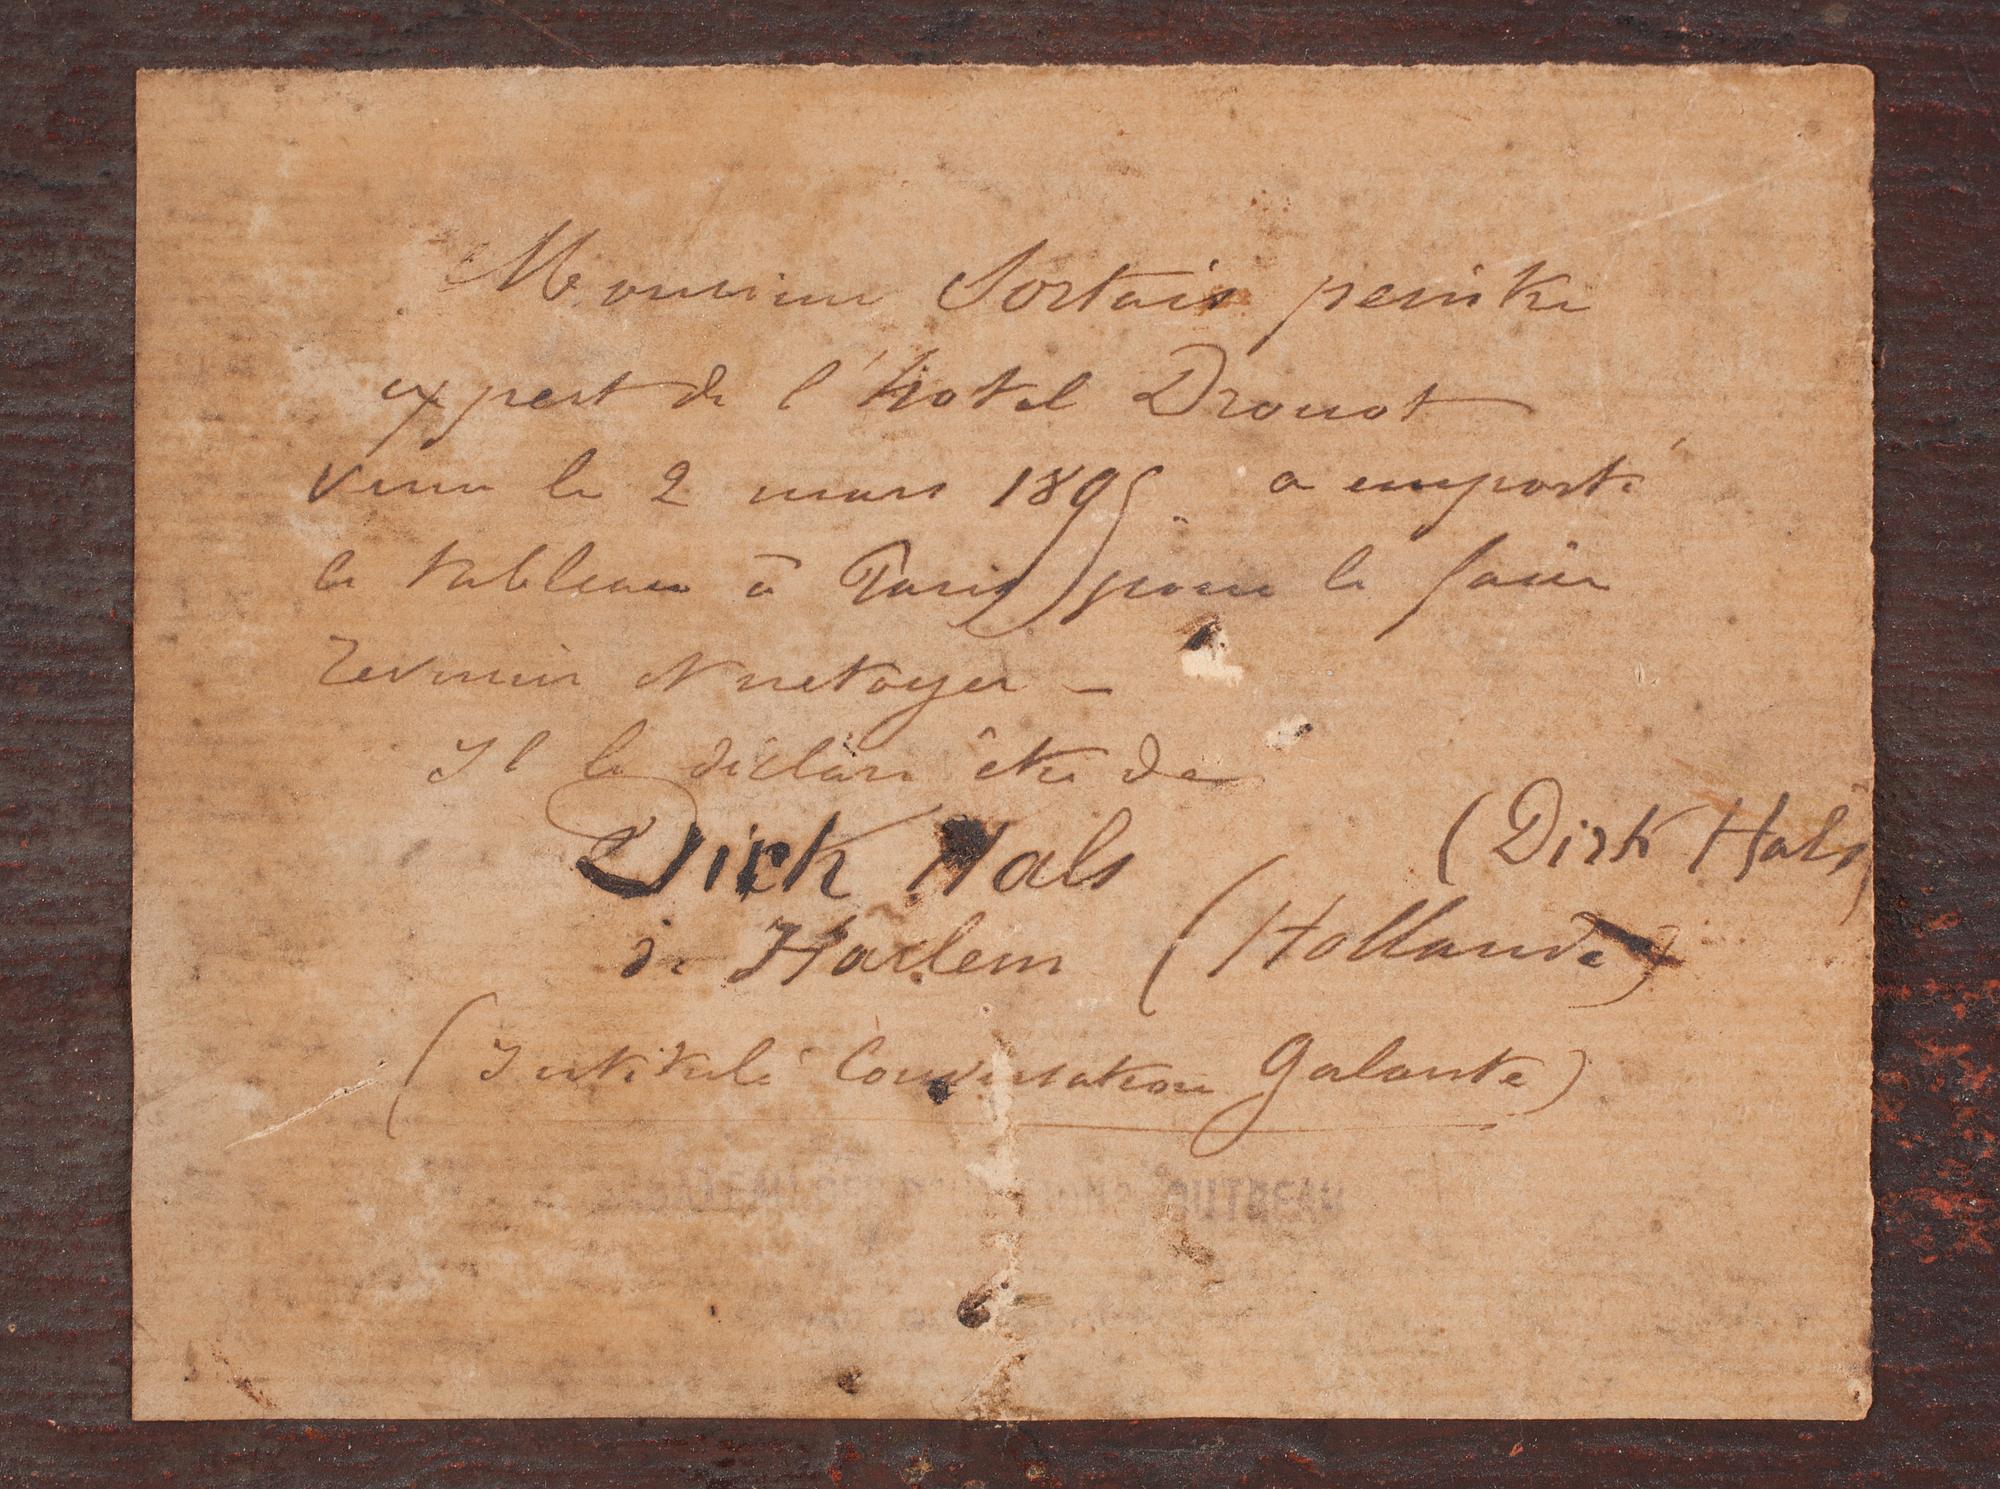 Monsieur Sortais peintre
expert de l'hotel Drouot
venu le 2 mars 1895 a emporté
le tableau à Paris pour le faire
revenir et netoyer –
Il le déclare être de
Dirck Hals (Dirk Hals)
de Harlem (Hollande)
(Intitulé Conversation Galante)